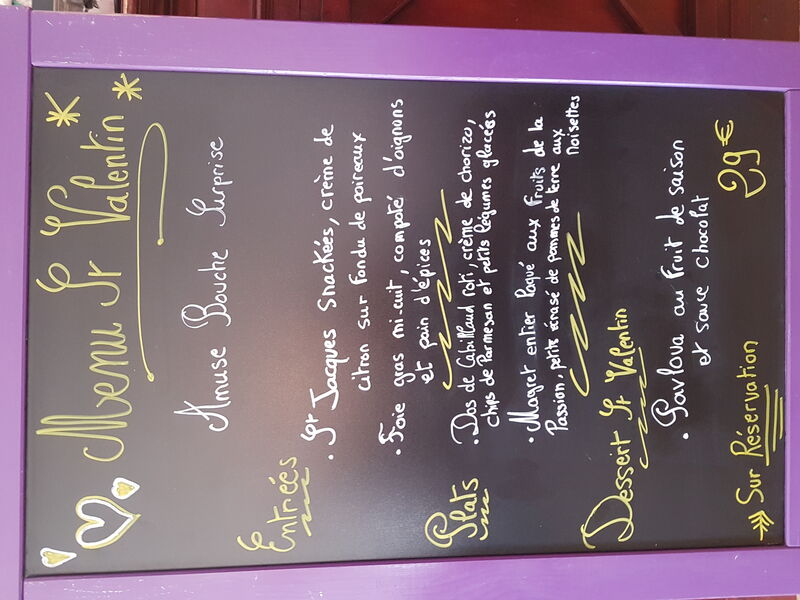 Menu St Valentin
Amuse Bouche Surprise
Entrées
• St Jacques snackées, crème de
citron sur fondu de poireaux
• Foie gras mi-cuit, compoté d'oignons
et pain d'épices
Plats
• Dos de Cabillaud roti, crème de chorizo,
chips de Parmesan et petits légumes glacées
• Magret entier laqué aux fruits de la
Passion, petits écrasé de pommes de terre aux
noisettes
Dessert St Valentin
• Pavlova au fruit de saison
et sauce chocolat
Sur Réservation
29€